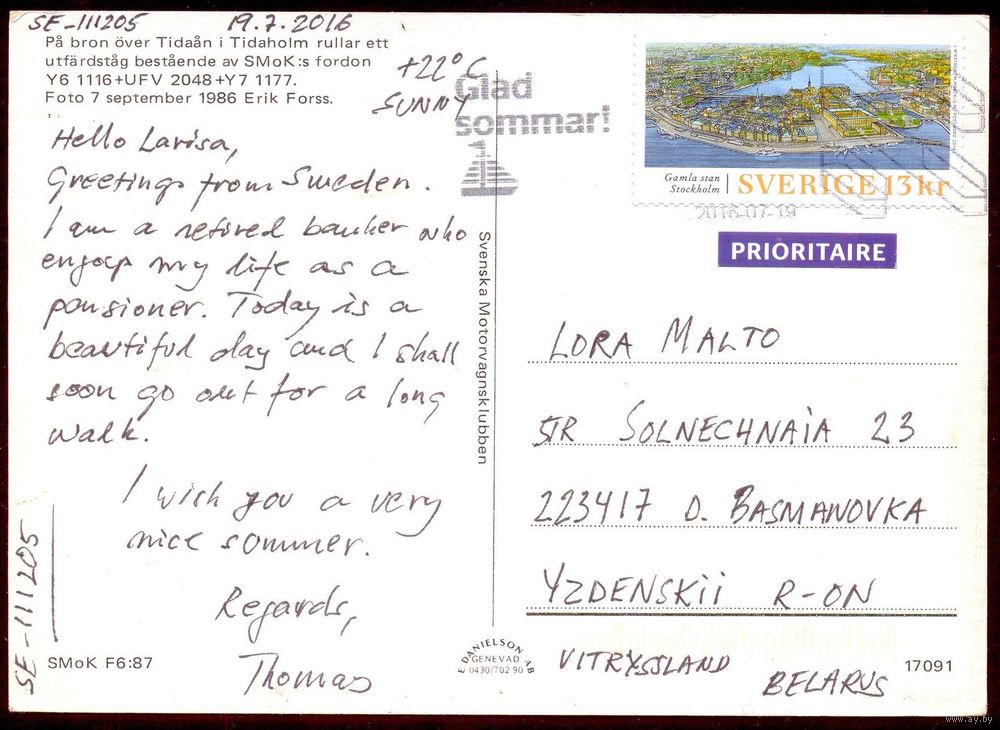 SE-111205 19.7.2016
På bron över Tidaån i Tidaholm rullar ett
utfärdståg bestående av SMoK:s fordon
Y6 1116+UFV 2048+Y7 1177.
Foto 7 september 1986 Erik Forss.
+22°C
SUNNY
Hello Larisa,
Greetings from Sweden.
I am a retired banker who
engoy my life as a
pensioner. Today is a
beautiful day and I shall
soon go out for a long
walk.
I wish you a very
nice sommer.
Regards,
Thomas
SE-111205
SMoK F6:87
Svenska Motorvagnsklubben
E DANIELSON AB
GENEVAD
0430/702 90
Glad
sommar!
Gamla stan
Stockholm
SVERIGE 13 kr
2016-07-19
PRIORITAIRE
LORA MALTO
STR SOLNECHNAIA 23
223417 D. BASMANOVKA
YZDENSKII R-ON
VITRYSSLAND
BELARUS
17091
www.ay.by